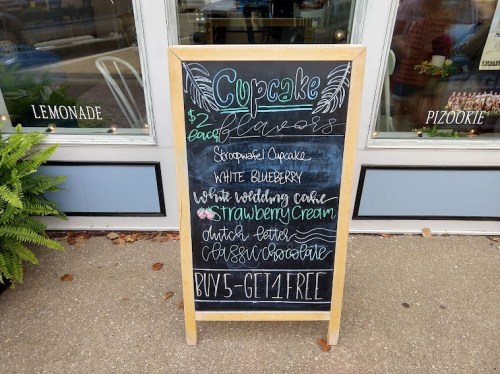 LEMONADE
PIZOOKIE
Cupcake
$2 each
flavors
Stroopwafel Cupcake
WHITE BLUEBERRY
white wedding cake
Strawberry Cream
dutch letter
classic chocolate
BUY 5-GET 1 FREE